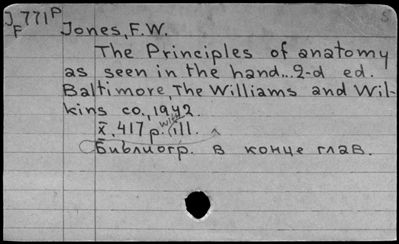 J 771 P 5
F Jones, F.W.
The Principles of anatomy
as seen in the hand...2-d ed.
Baltimore, The Williams and Wil-
kins co., 1942.
X, 417 p. with ill.
Библиогр. в конце глав.